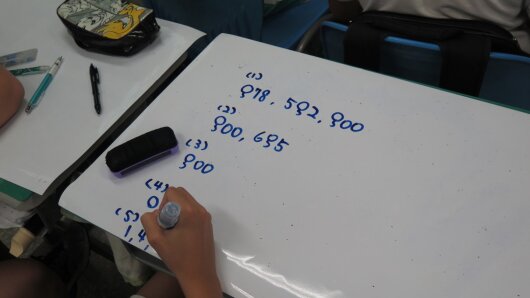 (1)
978, 592, 900
(2)
900, 695
(3)
900
(4)
0
(5)
1,4,